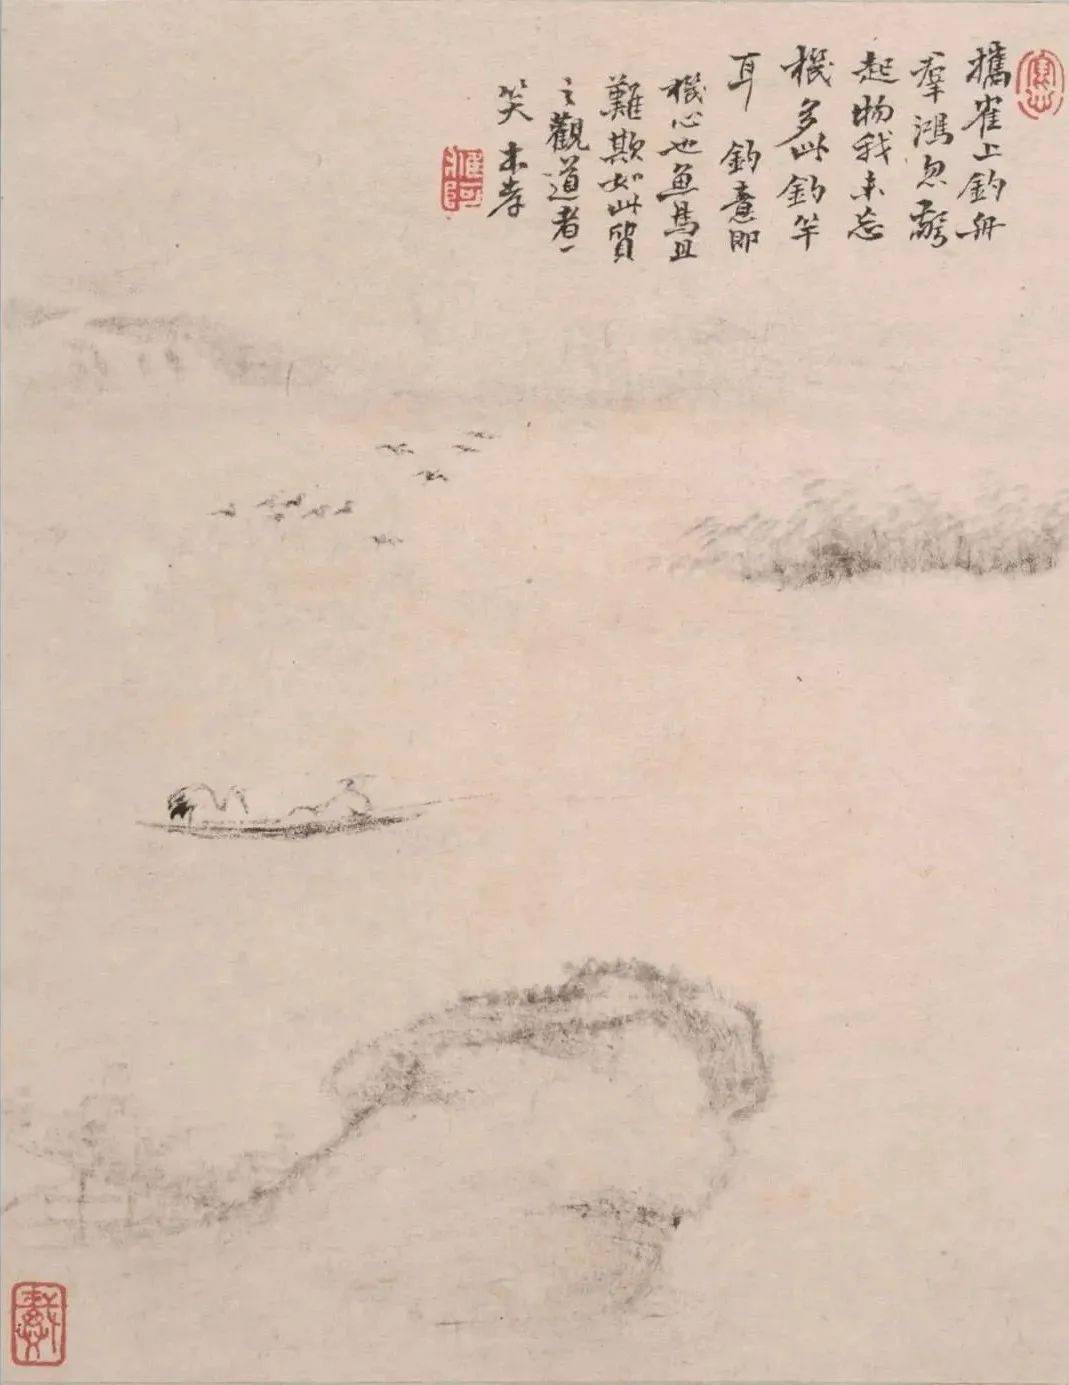 攜隺上釣舟
羣鴻忽驚
起物我未忘
機多此釣竿
耳 釣意即
機心也魚鳥且
難欺如此質
之觀道者一
笑 本孝
鷹阿